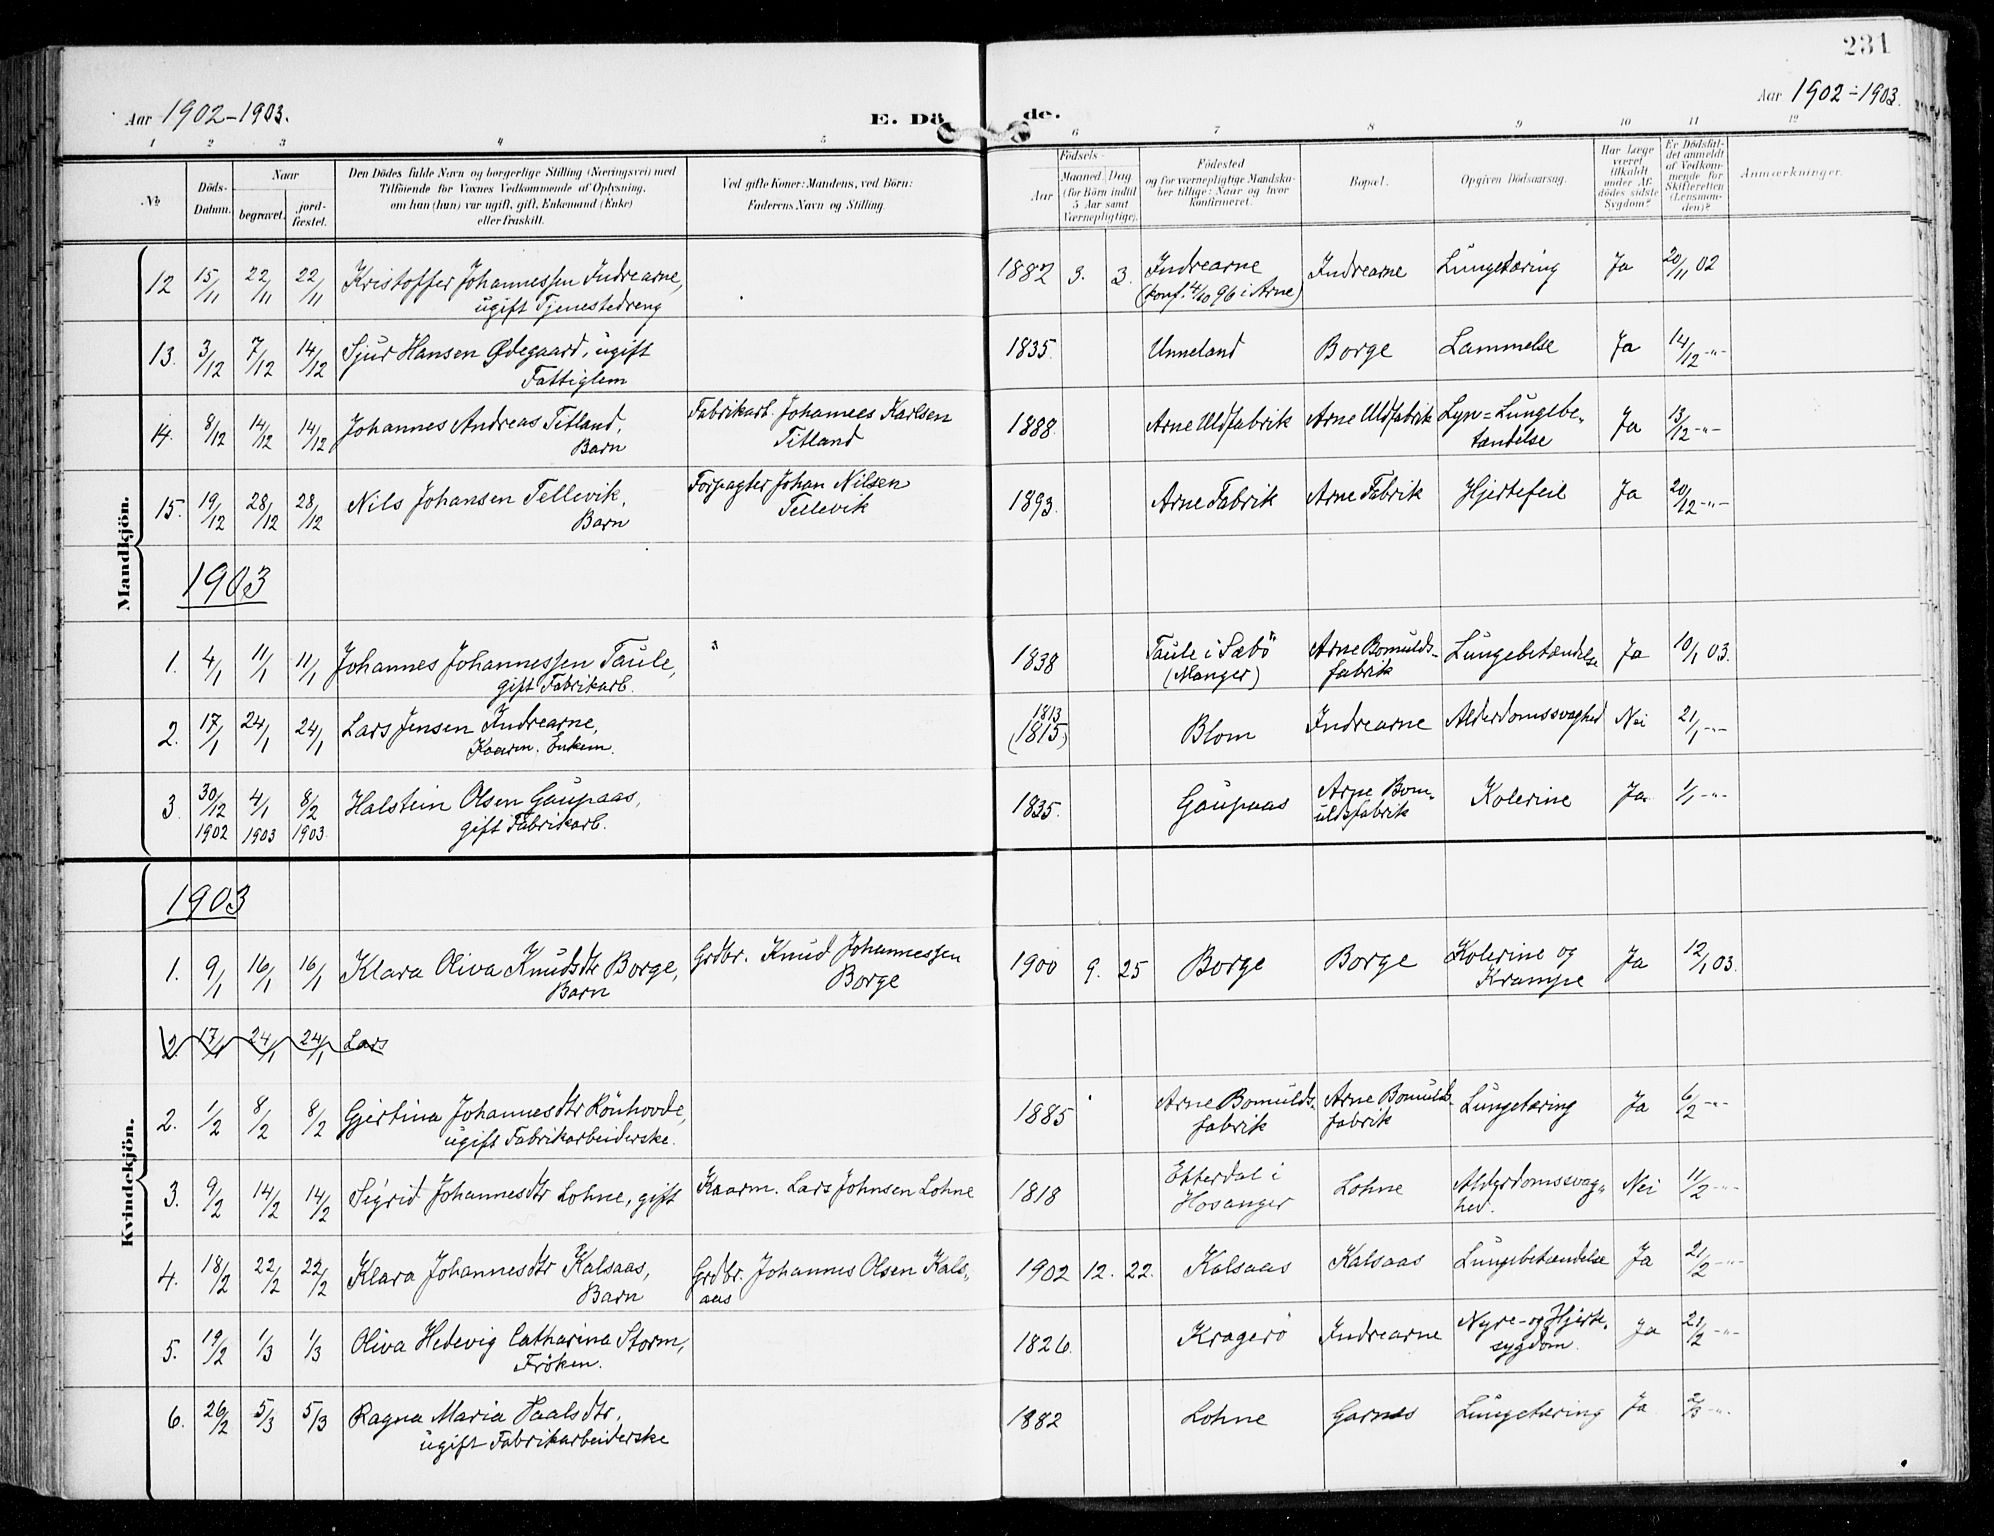 231
Aar 1902-1903.
E. Dö de.
Aar 1902-1903.
1 2 3 4 5 6 7 8 9 10 11 12
No
Döds-Datum.
Naar
begravet.
jord-fæstet.
Den Dödes fulde Navn og borgerlige Stilling (Næringsvei) med
Tilföiende for Voxnes Vedkommende af Oplysning,
om han (hun) var ugift, gift, Enkemand (Enke)
eller fraskilt.
Ved gifte Koner: Mandens, ved Börn:
Faderens Navn og Stilling.
Födsels-
Aar
Maaned. Dag.
(for Börn indtil
5 Aar samt
Værnepligtige).
Födested
og for værnepligtige Mandska-
ber tillige: Naar og hvor
konfirmeret.
Bopæl.
Opgiven Dödsaarsag.
Har Læge
været
tilkaldt
under Af-
dödes sidste
Sygdom?
Er Dödsfal-
det anmeldt
af Vedkom-
mende for
Skifteretten
(Lensman-
den)?
Anmærkninger.
Mandkjön.
12 15/11 22/11 22/11 Kristoffer Johannessen Indrearne, 1882 3. 3. Indrearne Indrearne Lungetæring Ja 20/11 02
ugift Tjenestedreng (konf. 4/10 96 i Arne)
13. 3/12 7/12 14/12 Sjur Hansen Ødegaard, ugift 1835. Unneland Borge Lammelse Ja 14/12 -"-
Fattiglem
14. 8/12 14/12 14/12 Johannes Andreas Titland, Fabrikarb. Johannes Karlsen 1888. Arne Uldfabrik Arne Uldfabrik Lyn=Lungebe- Ja 13/12 -"-
Barn Titland tændelse
15. 19/12 28/12 28/12 Nils Johansen Tellevik, Forpagter Johan Nilsen 1893. Arne Fabrik Arne Fabrik Hjertefeil Ja 20/12 -"-
Barn Tellevik
1903
1. 4/1 11/1 11/1 Johannes Johannessen Taule, " 1838 Taule i Sæbö Arne Bomulds- Lungebetændelse Ja 10/1 03.
gift Fabrikarb. (Manger) fabrik
2. 17/1 24/1 24/1 Lars Jensen Indrearne, 1813 (1815) Blom Indrearne Alderdomssvaghed Nei 21/1 -"-
Kaarm. Enkem.
3 30/12 4/1 8/2 Halstein Olsen Gaupaas, 1835. Gaupaas Arne Bom- Kolerine Ja. 1/1 -"-
1902 1903 1903. gift Fabrikarb. uldsfabrik
Kvindekjön.
1903
1. 9/1 16/1 16/1 Klara Oliva Knudsdtr Borge, Grdbr. Knud Johannessen 1900 9. 25 Borge Borge Kolerine og Ja 12/1 03.
Barn Borge Krampe
2. 17/1 24/1 24/1 Lars
2. 1/2 8/2 8/2 Gjertina Johannesdtr Rönhovde, 1885 Arne Bomulds- Arne Bomulds- Lungetæring Ja 6/2 -"-
ugift Fabrikarbeiderske. fabrik fabrik
3. 9/2 14/2 14/2 Sigrid Johannesdtr Lohne, gift Kaarm. Lars Johnsen Lohne 1818 Etterdal i Lohne Alderdomssvag- Nei 11/2 -"-
Hosanger hed.
4. 18/2 22/2 22/2 Klara Johannesdtr Kalsaas, Grdbr. Johannes Olsen Kals- 1902 12. 22. Kalsaas Kalsaas Lungebetændelse Ja 21/2 -"-
Barn aas
5. 19/2 1/3 1/3 Oliva Hedevig Catharina Storm, 1826. Kragerö Indrearne Nyre- og Hjerte- Ja 21/2 -"-
Fröken. sygdom.
6. 26/2 5/3 5/3 Ragna Maria Paalsdtr, 1882 Lohne Garnes Lungetæring Ja 2/3 -"-
ugift Fabrikarbeiderske